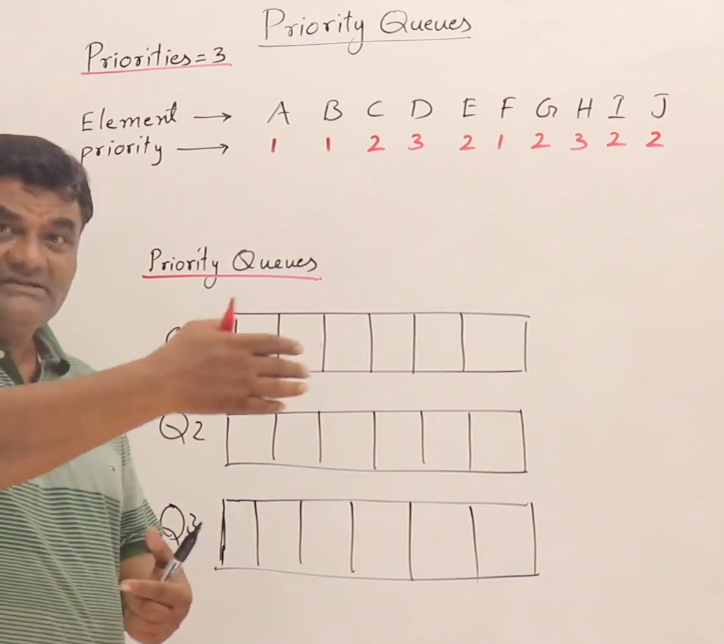 Priority Queues
Priorities=3
Element → A B C D E F G H I J
priority → 1 1 2 3 2 1 2 3 2 2
Priority Queues
Q2
Q3